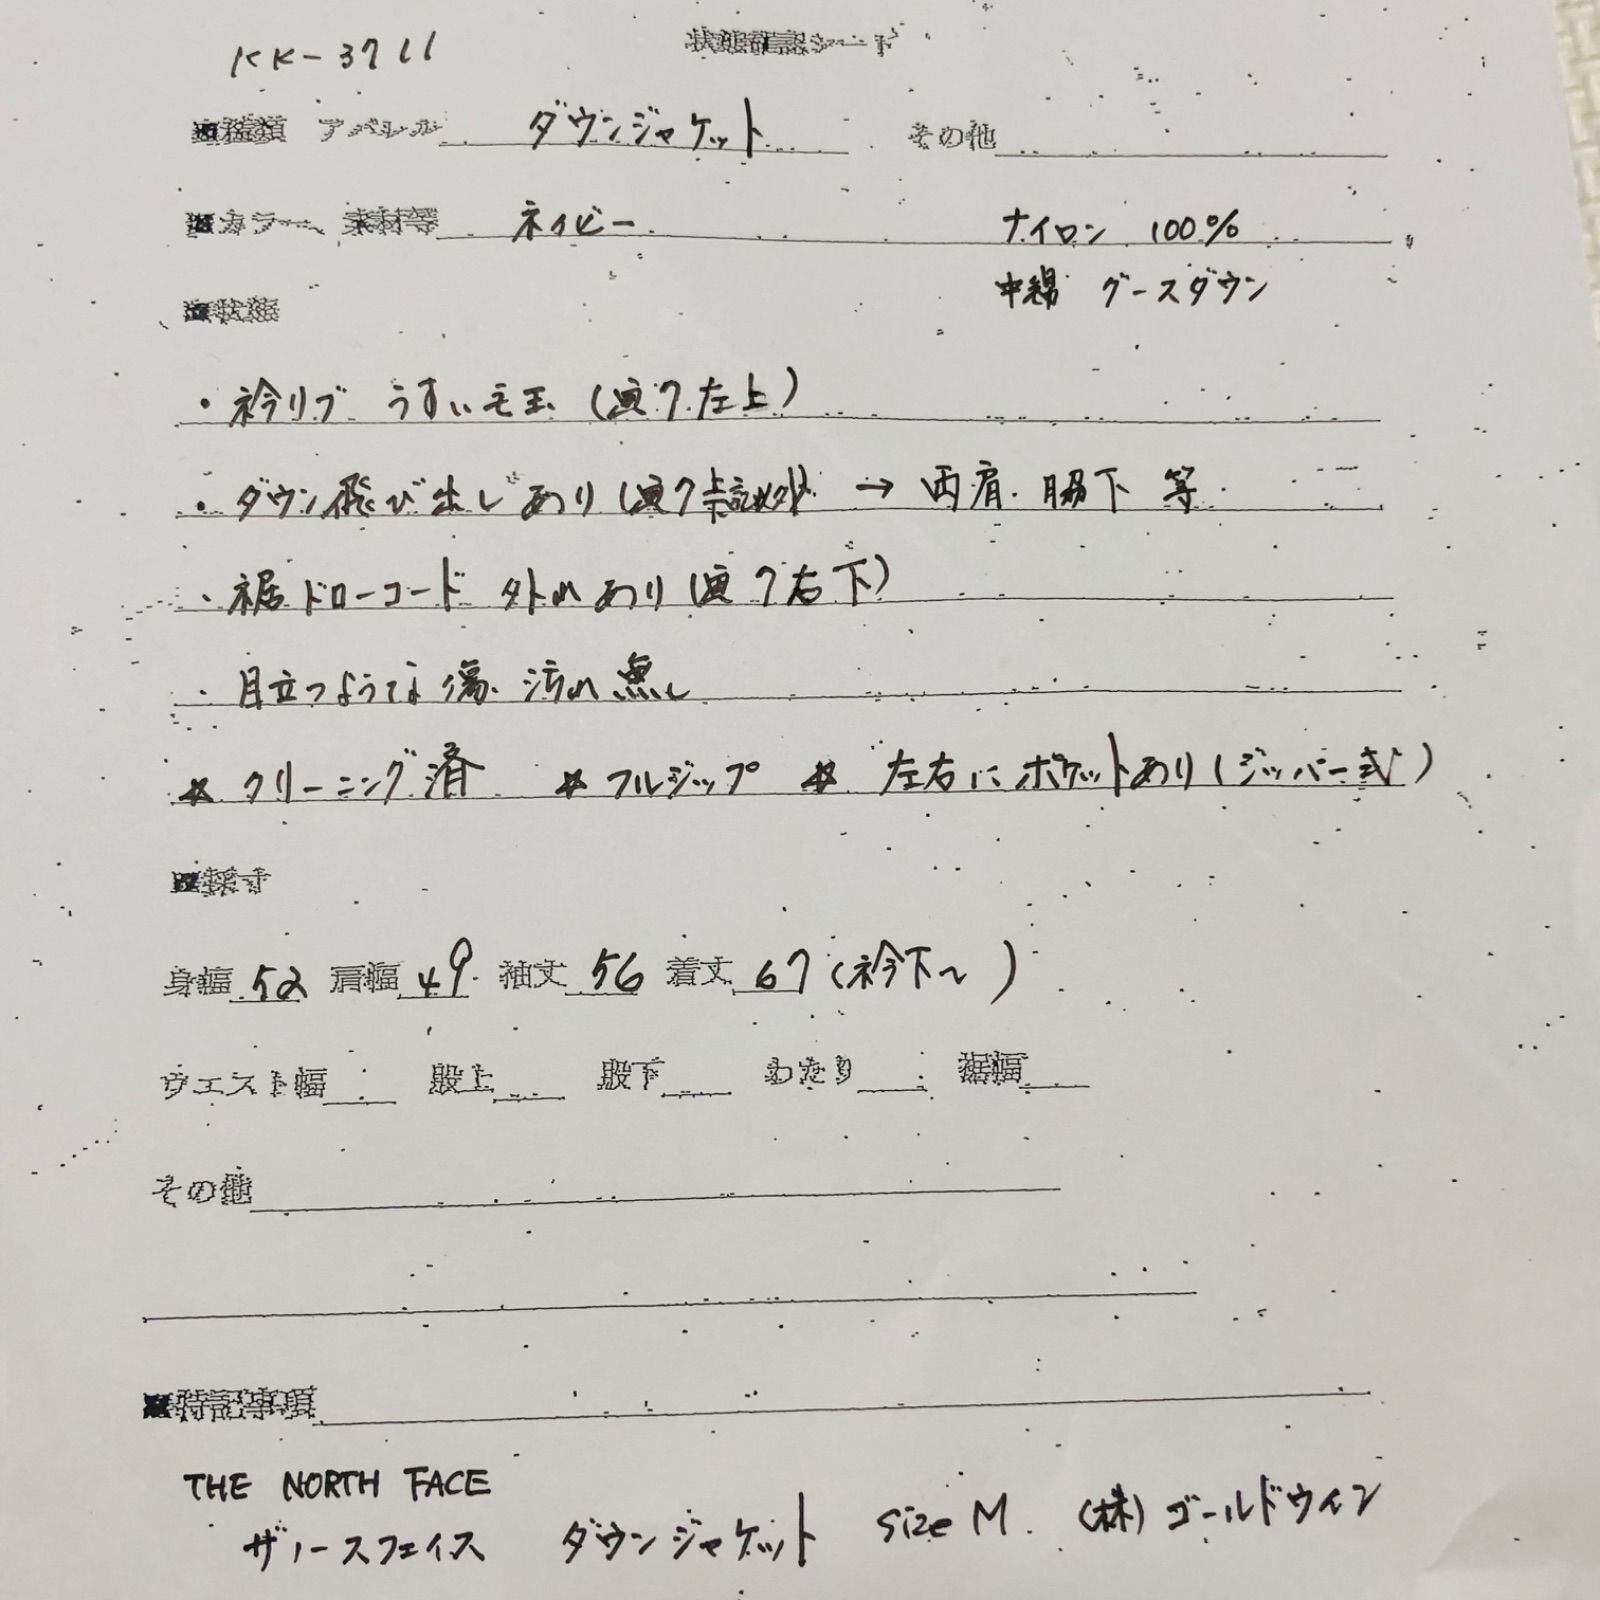 KK-3711
状態確認シート
■種類 アパレル ダウンジャケット その他
■カラー、素材等 ネイビー ナイロン 100%
中綿 グースダウン
■状態
・衿リブ うすい毛玉 (寅7左上)
・ダウン飛び出しあり (寅7上記以外 → 両肩. 脇下 等
・裾ドローコード 外れあり (寅7右下)
・目立つような傷. 汚れ無し
* クリーニング済 * フルジップ * 左右にポケットあり (ジッパー式)
■採寸
身幅 52 肩幅 49 袖丈 56 着丈 67 (衿下〜 )
ウエスト幅 股上 股下 わたり 裾幅
その他
■特記事項
THE NORTH FACE
ザノースフェイス ダウンジャケット size M. (株)ゴールドウイン